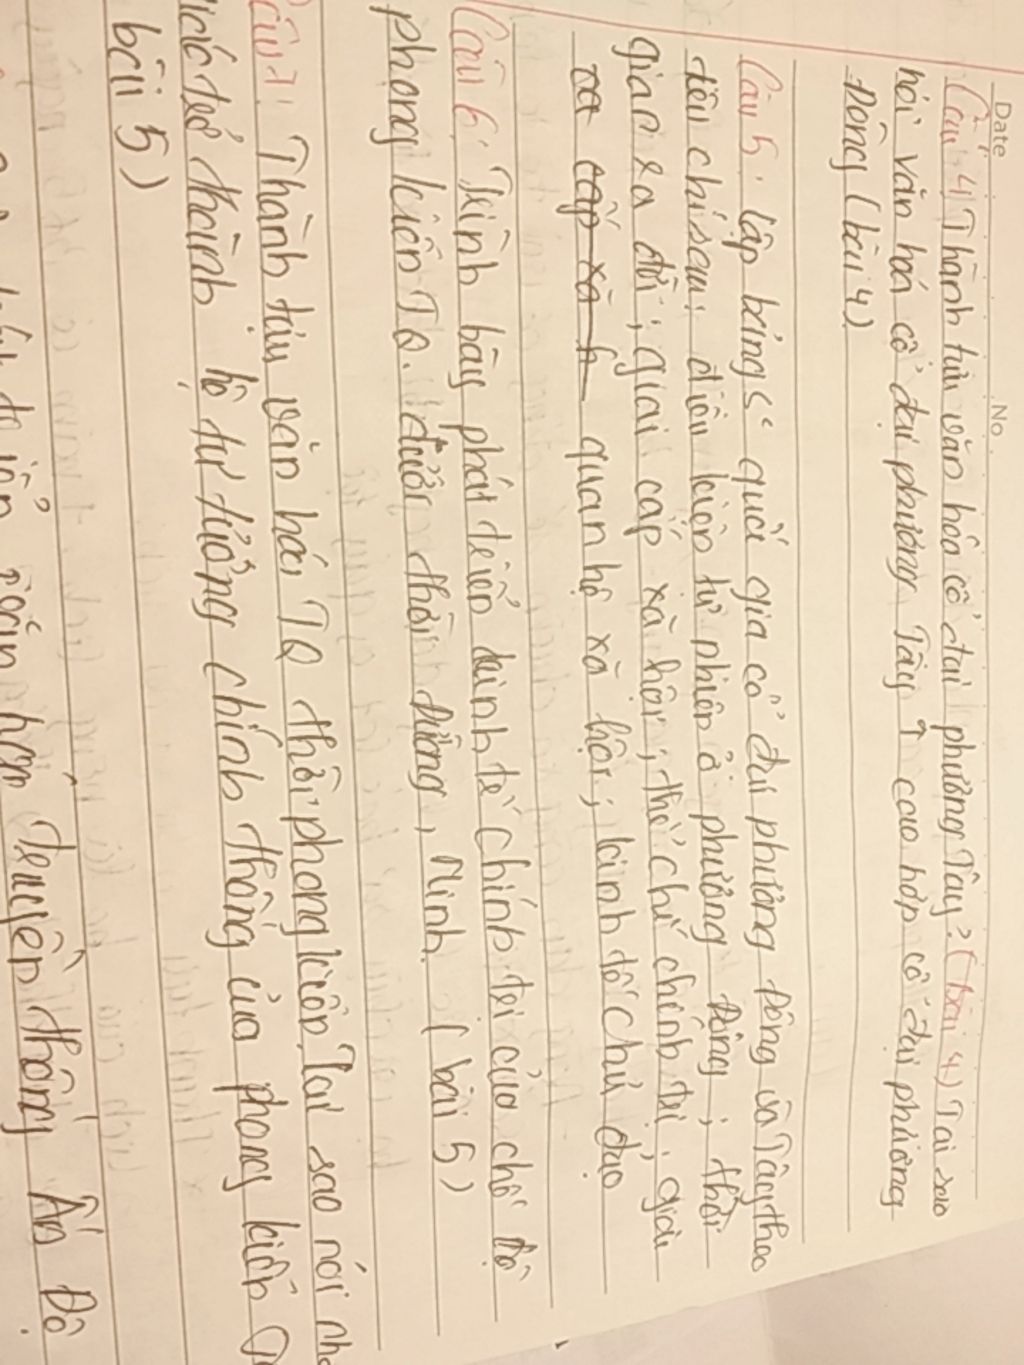 Date No.
Câu 4) Thành tựu văn hóa cổ đại phương Tây? (bài 4) Tại sao
nói văn hoá cổ đại phương Tây ↑ cao hơn cổ đại phương
Đông (bài 4)
Câu 5: lập bảng s² quốc gia cổ đại phương Đông và Tây theo
tiêu chí sau: điều kiện tự nhiên ở phương Đông; thời
gian ra đời; giai cấp xã hội; thể chế chính trị; giai
quan hệ xã hội; kinh tế chủ đạo
Câu 6: Trình bày phát triển kinh tế chính trị của chế độ
phong kiến TQ. dưới thời Đường, Minh. (bài 5)
Câu 7: Thành tựu văn hóa TQ thời phong kiến. Tại sao nói nho
giáo trở thành hệ tư tưởng chính thống của phong kiến
bài 5)
truyền thống Ấn Độ